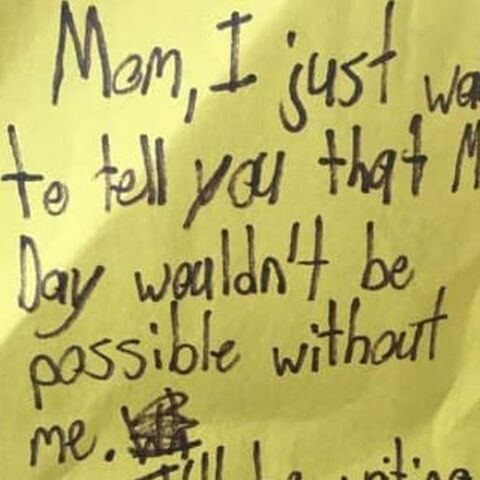 Mom, I just wa
to tell you that M
Day wouldn't be
possible without
me.
I'll be